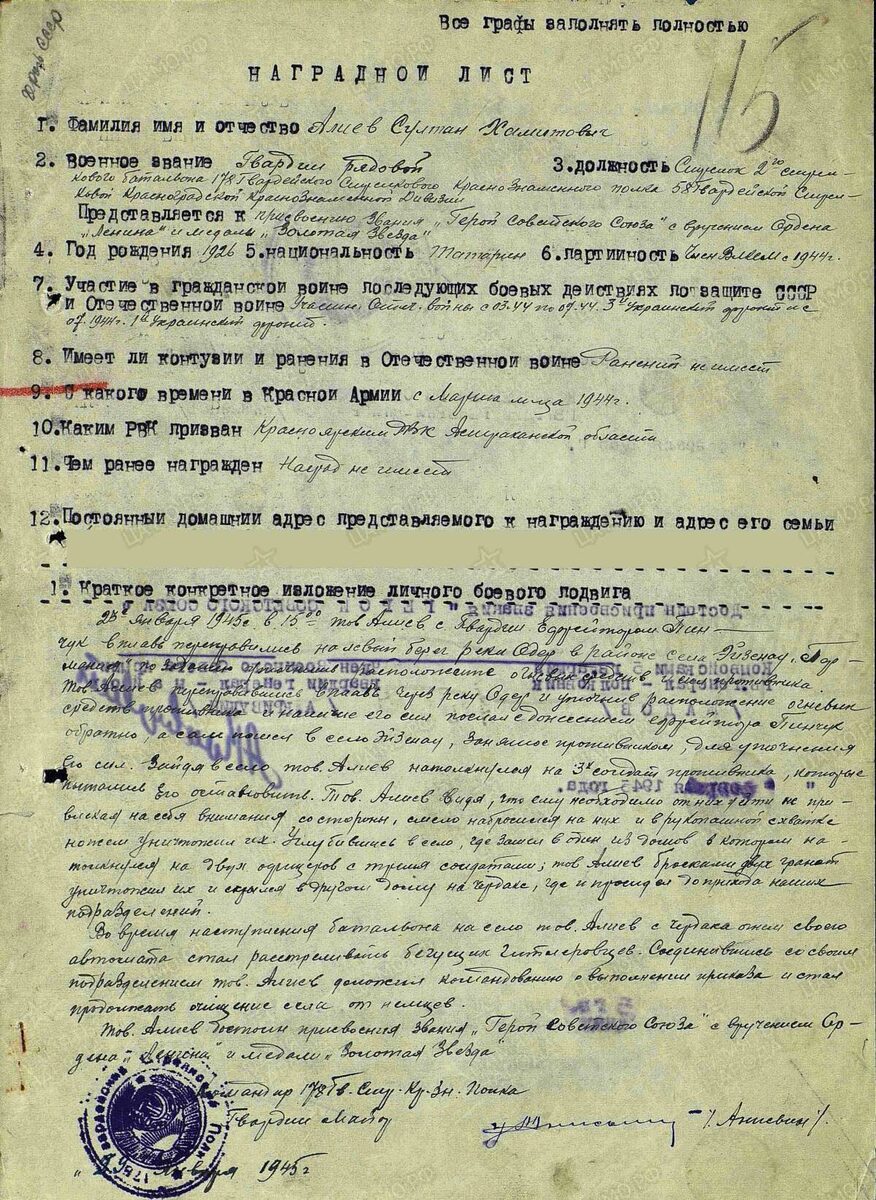 Все графы заполнять полностью
115
НАГРАДНОЙ ЛИСТ
I. Фамилия имя и отчество Алиев Султан Хамитович
2. Военное звание Гвардии рядовой 3. должность Стрелок 2го стрел-
кового батальона 178 Гвардейского Стрелкового Краснознаменного полка 58 Гвардейской Стрел-
ковой Красноградской Краснознаменной Дивизии
Представляется к присвоению Звания „Герой Советского Союза" с вручением Ордена
„Ленина" и медали „Золотая Звезда"
4. Год рождения 1926 5. национальность Татарин 6. партийность Член ВЛКСМ с 1944г.
7. Участие в гражданской войне последующих боевых действиях по защите СССР
и Отечественной войне Участник Отеч. войны с 03.44 по 07.44. 3й Украинский фронт и с
07.1944г. 1й Украинский фронт.
8. Имеет ли контузии и ранения в Отечественной войне Ранений не имеет
9. С какого времени в Красной Армии с Марта м-ца 1944г.
10. Каким РВК призван Красноярским РВК Астраханской области
11. Чем ранее награжден Наград не имеет
12. Постоянный домашний адрес представляемого к награждению и адрес его семьи
1. Краткое конкретное изложение личного боевого подвига
января 1945г. в 15 00 тов. Алиев с Гвардии Ефрейтором Пин-
чук вплавь переправились на левый берег реки Одер в районе села Эйзенау, Гер-
мания по расположение огневых средств и сил противника.
Тов. Алиев переправившись вплавь через реку Одер и уточнив расположение огневых
средств противника и наличие его сил послал с донесением ефрейтора Пинчук
обратно, а сам пошел в село Эйзенау, занятое противником, для уточнения
его сил. Зайдя в село тов. Алиев натолкнулся на 3х солдат противника, которые
пытались его остановить. Тов. Алиев видя, что ему необходимо от них уйти не при-
влекая на себя внимания со стороны, смело набросился на них и в рукопашной схватке
ножем уничтожил их. Углубившись в село, где зашел в один из домов в котором на-
толкнулся на двух офицеров с тремя солдатами; тов. Алиев бросками двух гранат
уничтожил их и скрылся в другом дому на чердаке, где и просидел до прихода наших
подразделений.
Во время наступления батальона на село тов. Алиев с чердака огнем своего
автомата стал расстреливать бегущих гитлеровцев. Соединившись со своим
подразделением тов. Алиев доложил командованию о выполнении приказа и стал
продолжать очищение села от немцев.
Тов. Алиев достоин присвоения звания „Герой Советского Союза" с вручением Ор-
дена „Ленина" и медали „Золотая Звезда"
Командир 178 Гв. Стр. Кр. Зн. Полка
Гвардии Майор
Января 1945г